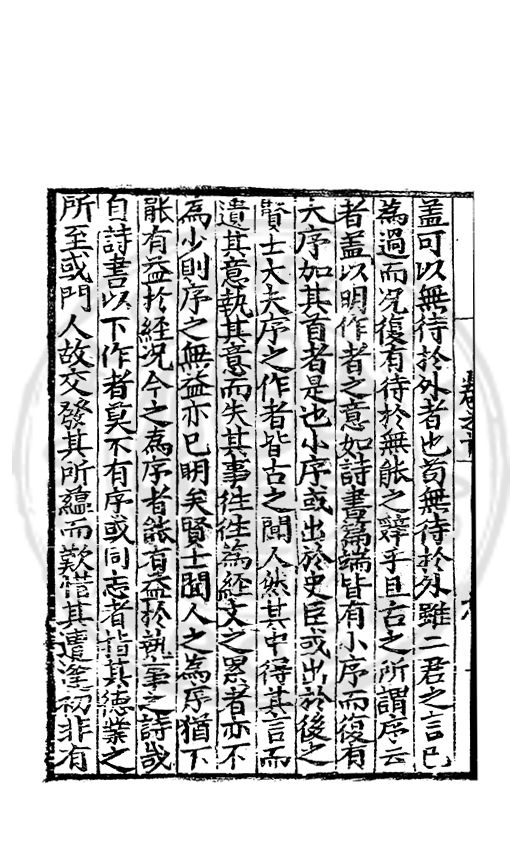 蓋可以無待於外者也苟無待於外雖二君之言已
為過而况復有待於無能之辭乎且古之所謂序云
者盖以明作者之意如詩書篇端皆有小序而復有
大序如其首者是也小序或出於史臣或出於後之
賢士大夫序之作者皆古之聞人然其中得其言而
遺其意執其意而失其事徃徃為經文之累者亦不
為少則序之無益亦已明矣賢士聞人之為序猶不
能有益於經况今之為序者能有益於執事之詩哉
自詩書以下作者莫不有序或同志者指其德業之
所至或門人故交發其所蘊而歎惜其遭逢初非有